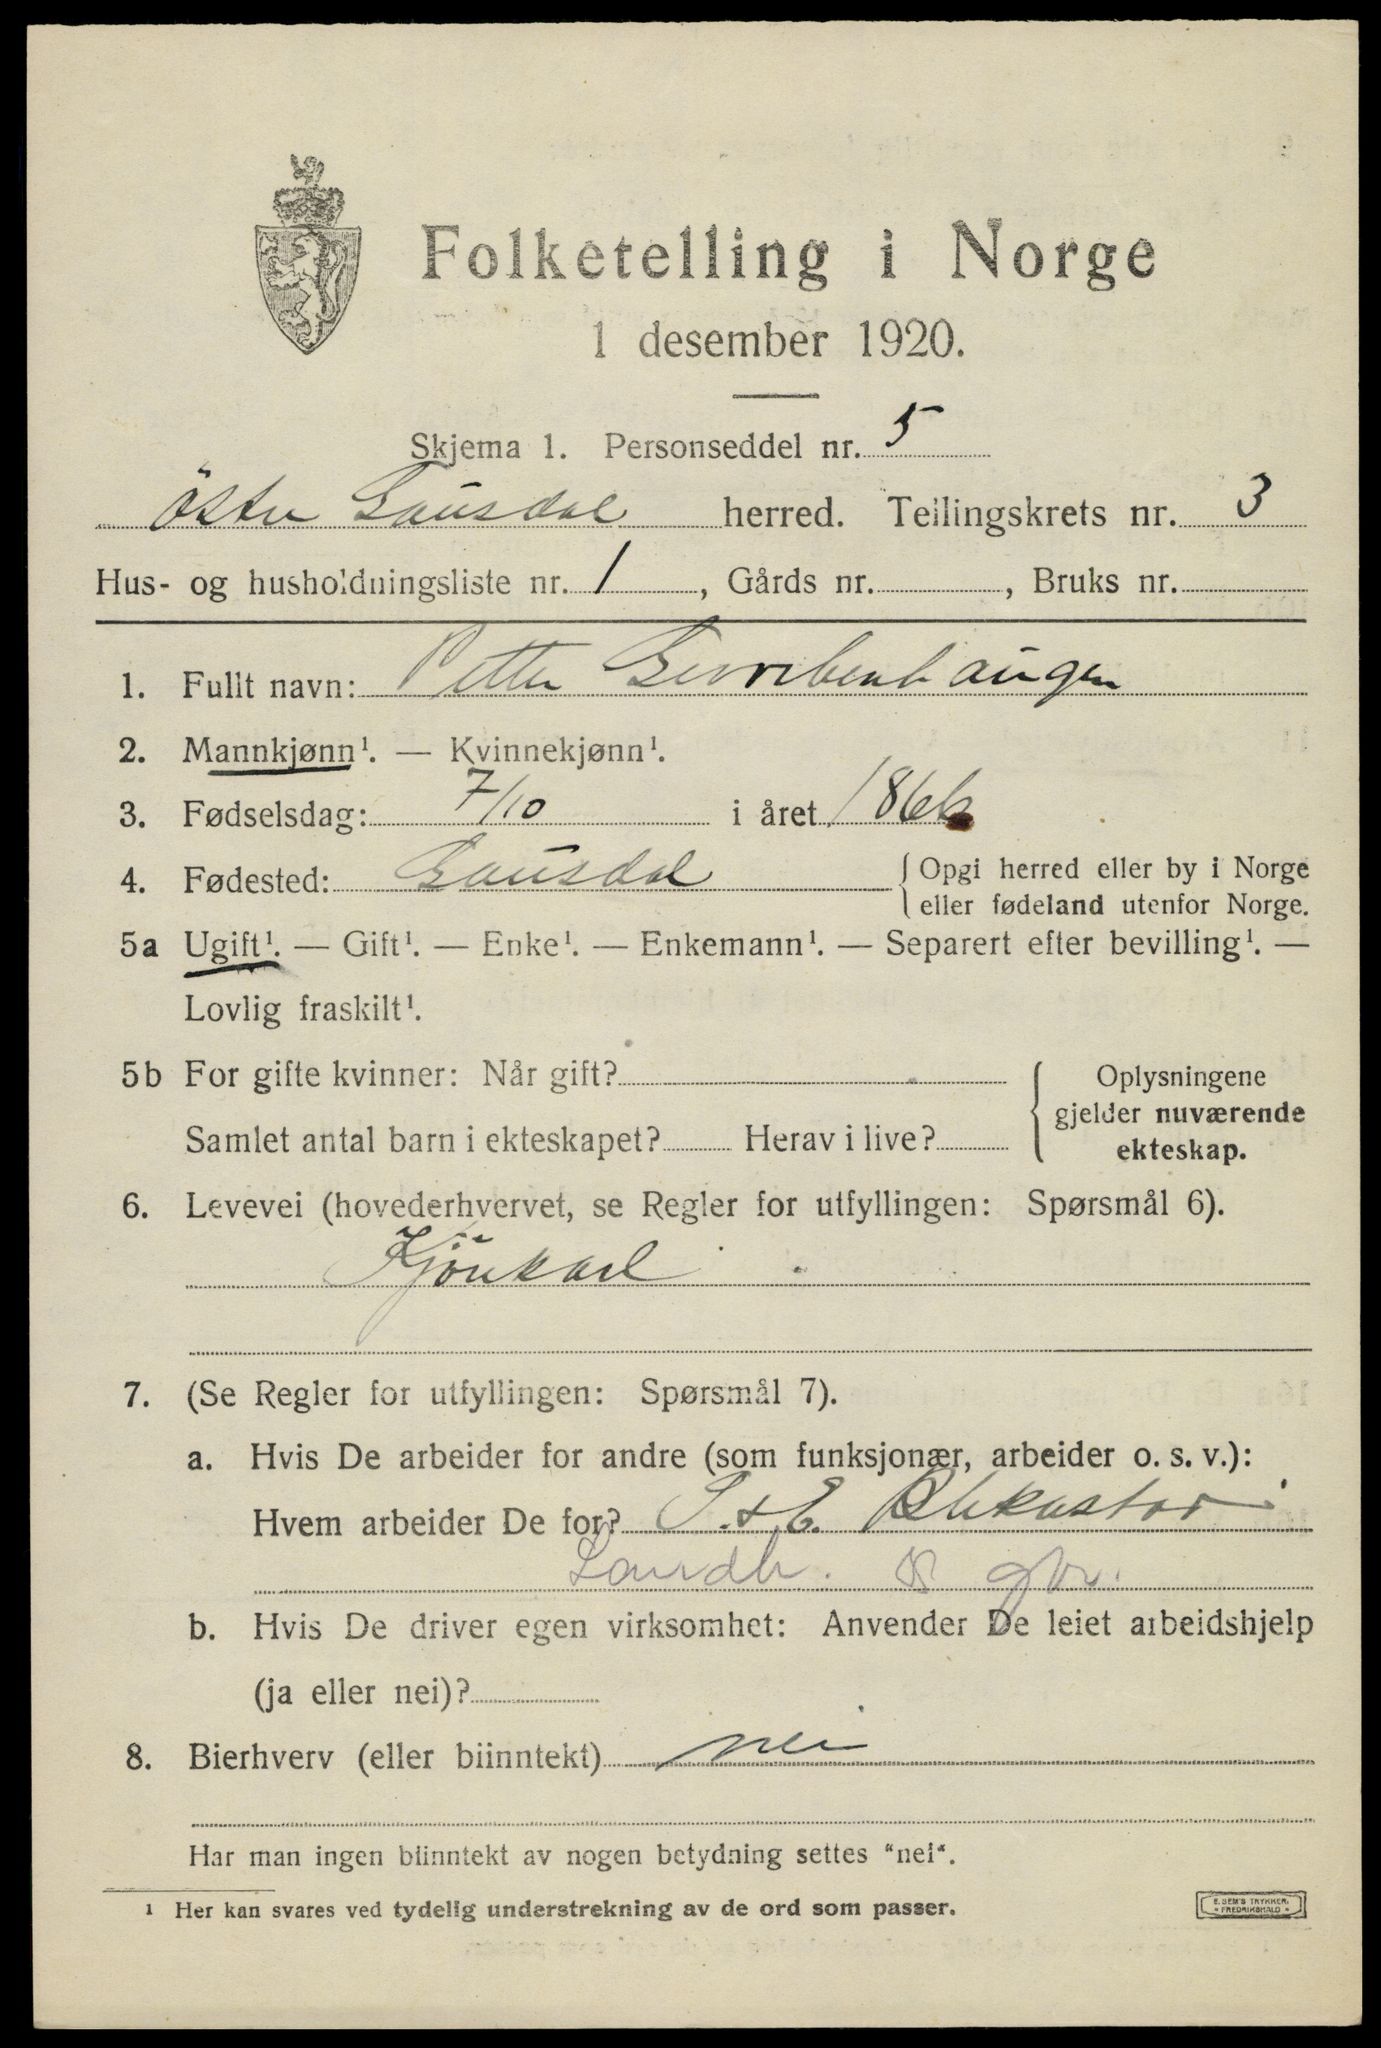 Folketelling i Norge
1 desember 1920.
Skjema 1. Personseddel nr. 5
Östre Gausdal herred. Tellingskrets nr. 3
Hus- og husholdningsliste nr. 1, Gårds nr. , Bruks nr.
1. Fullt navn: Petter
2. Mannkjønn¹. — Kvinnekjønn¹.
3. Fødselsdag: 7/10 i året 1866
4. Fødested: Gausdal { Opgi herred eller by i Norge
eller fødeland utenfor Norge.
5a Ugift¹. — Gift¹. — Enke¹. — Enkemann¹. — Separert efter bevilling¹. —
Lovlig fraskilt¹.
5b For gifte kvinner: Når gift?
Samlet antal barn i ekteskapet? Herav i live?
{ Oplysningene
gjelder nuværende
ekteskap.
6. Levevei (hovederhvervet, se Regler for utfyllingen: Spørsmål 6).
Kjörekarl
7. (Se Regler for utfyllingen: Spørsmål 7).
a. Hvis De arbeider for andre (som funksjonær, arbeider o. s. v.):
Hvem arbeider De for?
b. Hvis De driver egen virksomhet: Anvender De leiet arbeidshjelp
(ja eller nei)?
8. Bierhverv (eller biinntekt) nei
Har man ingen biinntekt av nogen betydning settes "nei".
¹ Her kan svares ved tydelig understrekning av de ord som passer.
E. SEM'S TRYKKERI
FREDRIKSHALD